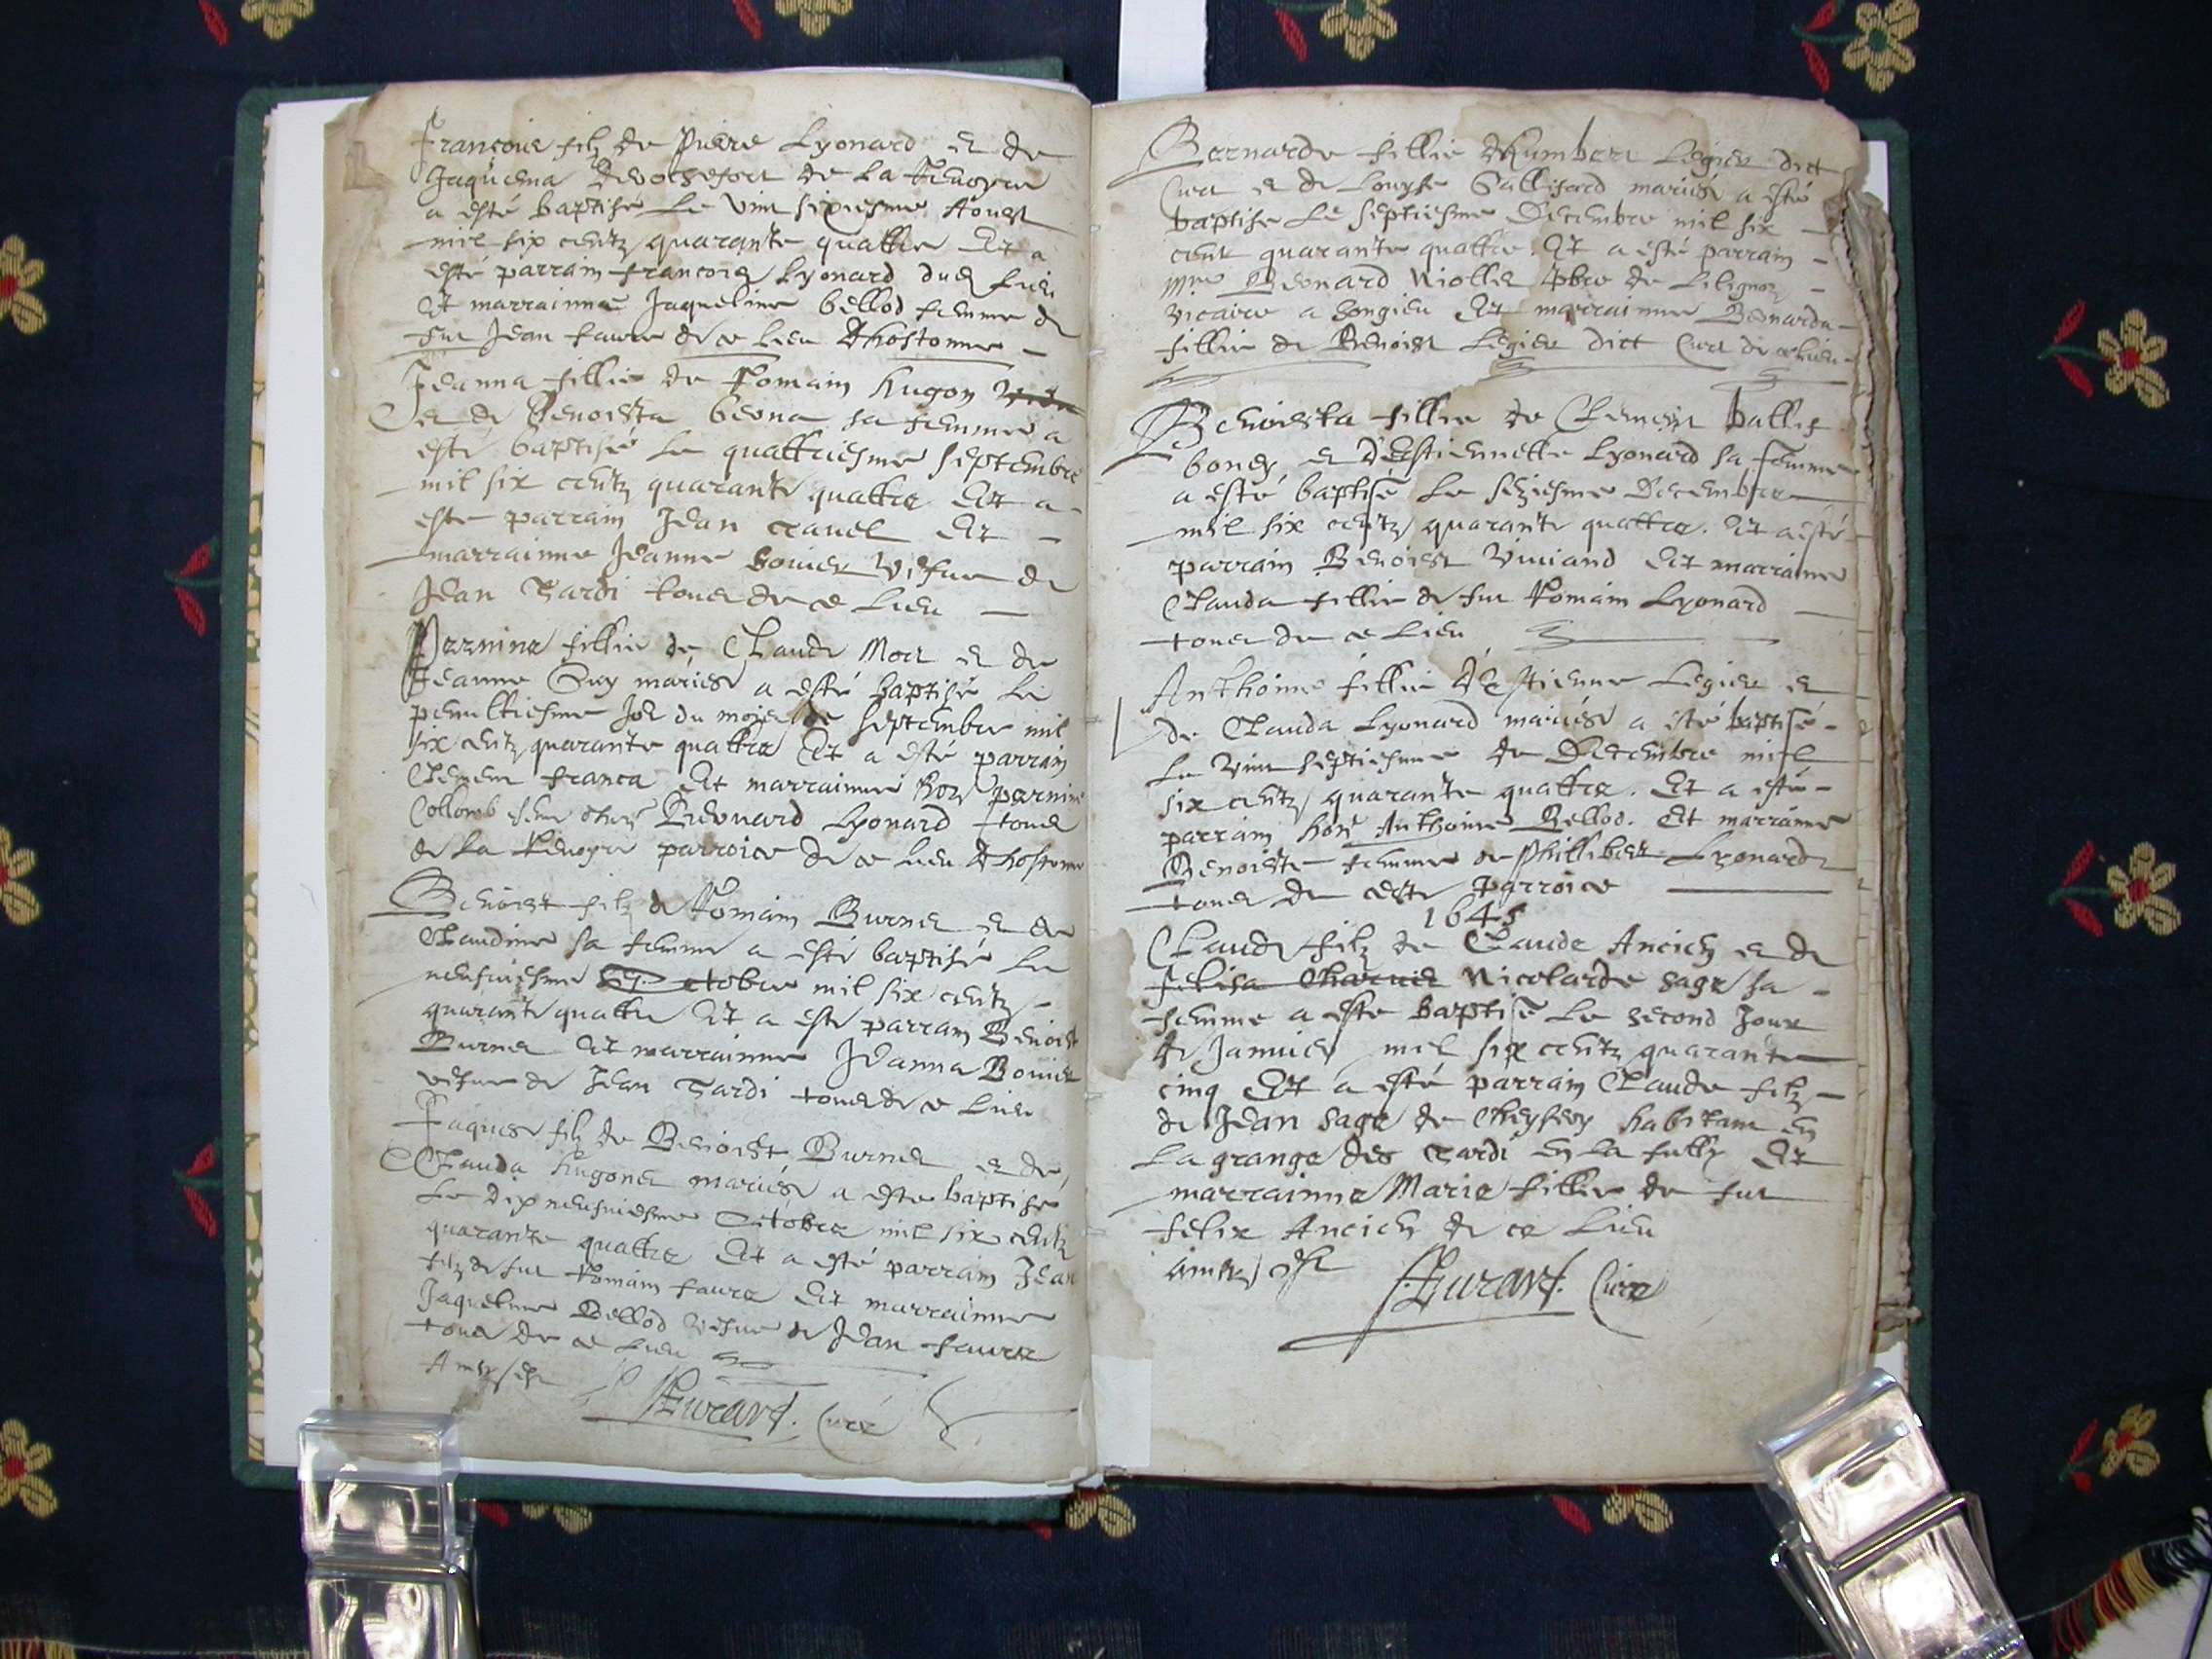 François filz de Pierre Lyonard et de
Jaquema de la
a esté baptisé le vint sixiesme Aoust
mil six centz quarante quattre Et a
esté parrain françois Lyonard dud lieu
Et marrainne Jaqueline bellod femme de
fut Jean faure de ce lieu Dhostonne
Jeanna fillie de Romain hugon
et de Benoiste beona sa femme a
esté baptisé le quattriesme septembre
mil six centz quarante quattre Et a
este parrain Jean cravel Et
marrainne Jeanne bovier vefue de
Jean Tardi tous de ce lieu
Pernine fillie de Claude Mort et de
Jeanne Suy mariés a esté baptisé le
penultiesme Jor du mois de septembre mil
six centz quarante quattre Et a esté parrain
Clement franca Et marrainne hon pernine
Collomb feme Bernard Lyonard tous
de la parroice de ce lieu Dhostonne
Benoist filz de Romain Burnet et de
Claudine sa femme a esté baptisé le
neufuiesme octobre mil six centz
quarante quattre Et a esté parrain Benoist
Burnet Et marrainne Jeanna Bovier
vefue de Jean Tardi tous de ce lieu
Jaques filz de Benoist Burnet et de
Clauda hugonet mariés a este baptisé
le dix neufuiesme Octobre mil six centz
quarante quattre Et a esté parrain Jean
filz de fut Romain faure Et marrainne
Jaqueline Bellod vefue de Jean faure
tous de ce lieu
Ainsy est
Curé
Bernarde fillie dhumbert Legier dict
Curt et de Louyse Gallifard mariés a esté
baptisé le septiesme Decembre mil six
cent quarante quattre. Et a esté parrain
mre Bernard Niollet pbre de
vicaire a Songieu Et marrainne Bernarde
fillie de Benoist Legier dict Curt de ce lieu
Benoista fillie de Clement ballif
bones et d'Estiennette Lyonard sa femme
a esté baptisé le seziesme Decembre
mil six centz quarante quattre. Et a esté
parrain Benoist Viviand Et marrainne
Clauda fillie de fut Romain Lyonard
tous de ce lieu
Anthoine fillie d'Estienne Legier et
de Clauda Lyonard mariés a esté baptisé
le vint septiesme de Decembre mil
six centz quarante quattre. Et a esté
parrain hon Anthoine Bellod. Et marrainne
Benoiste femme de Phillibert Lyonard
tous de ceste parroice
1645
Claude filz de Claude Ancien et de
felisa Charvet Nicolarde sage sa
femme a esté baptisé le second Jour
de Janvier mil six centz quarante
cinq Et a esté parrain Claude filz
de Jean sage de Cheyssey habitant en
La grange des Tardi en la fully Et
marrainne Marie fillie de fut
felix Ancien de ce lieu
ainsy est
Curé